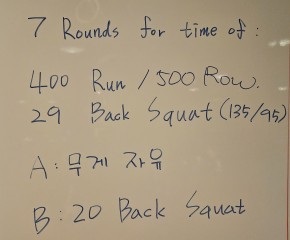 7 Rounds for time of :
400 Run / 500 Row.
29 Back Squat (135/95)
A : 무게 자유
B : 20 Back Squat